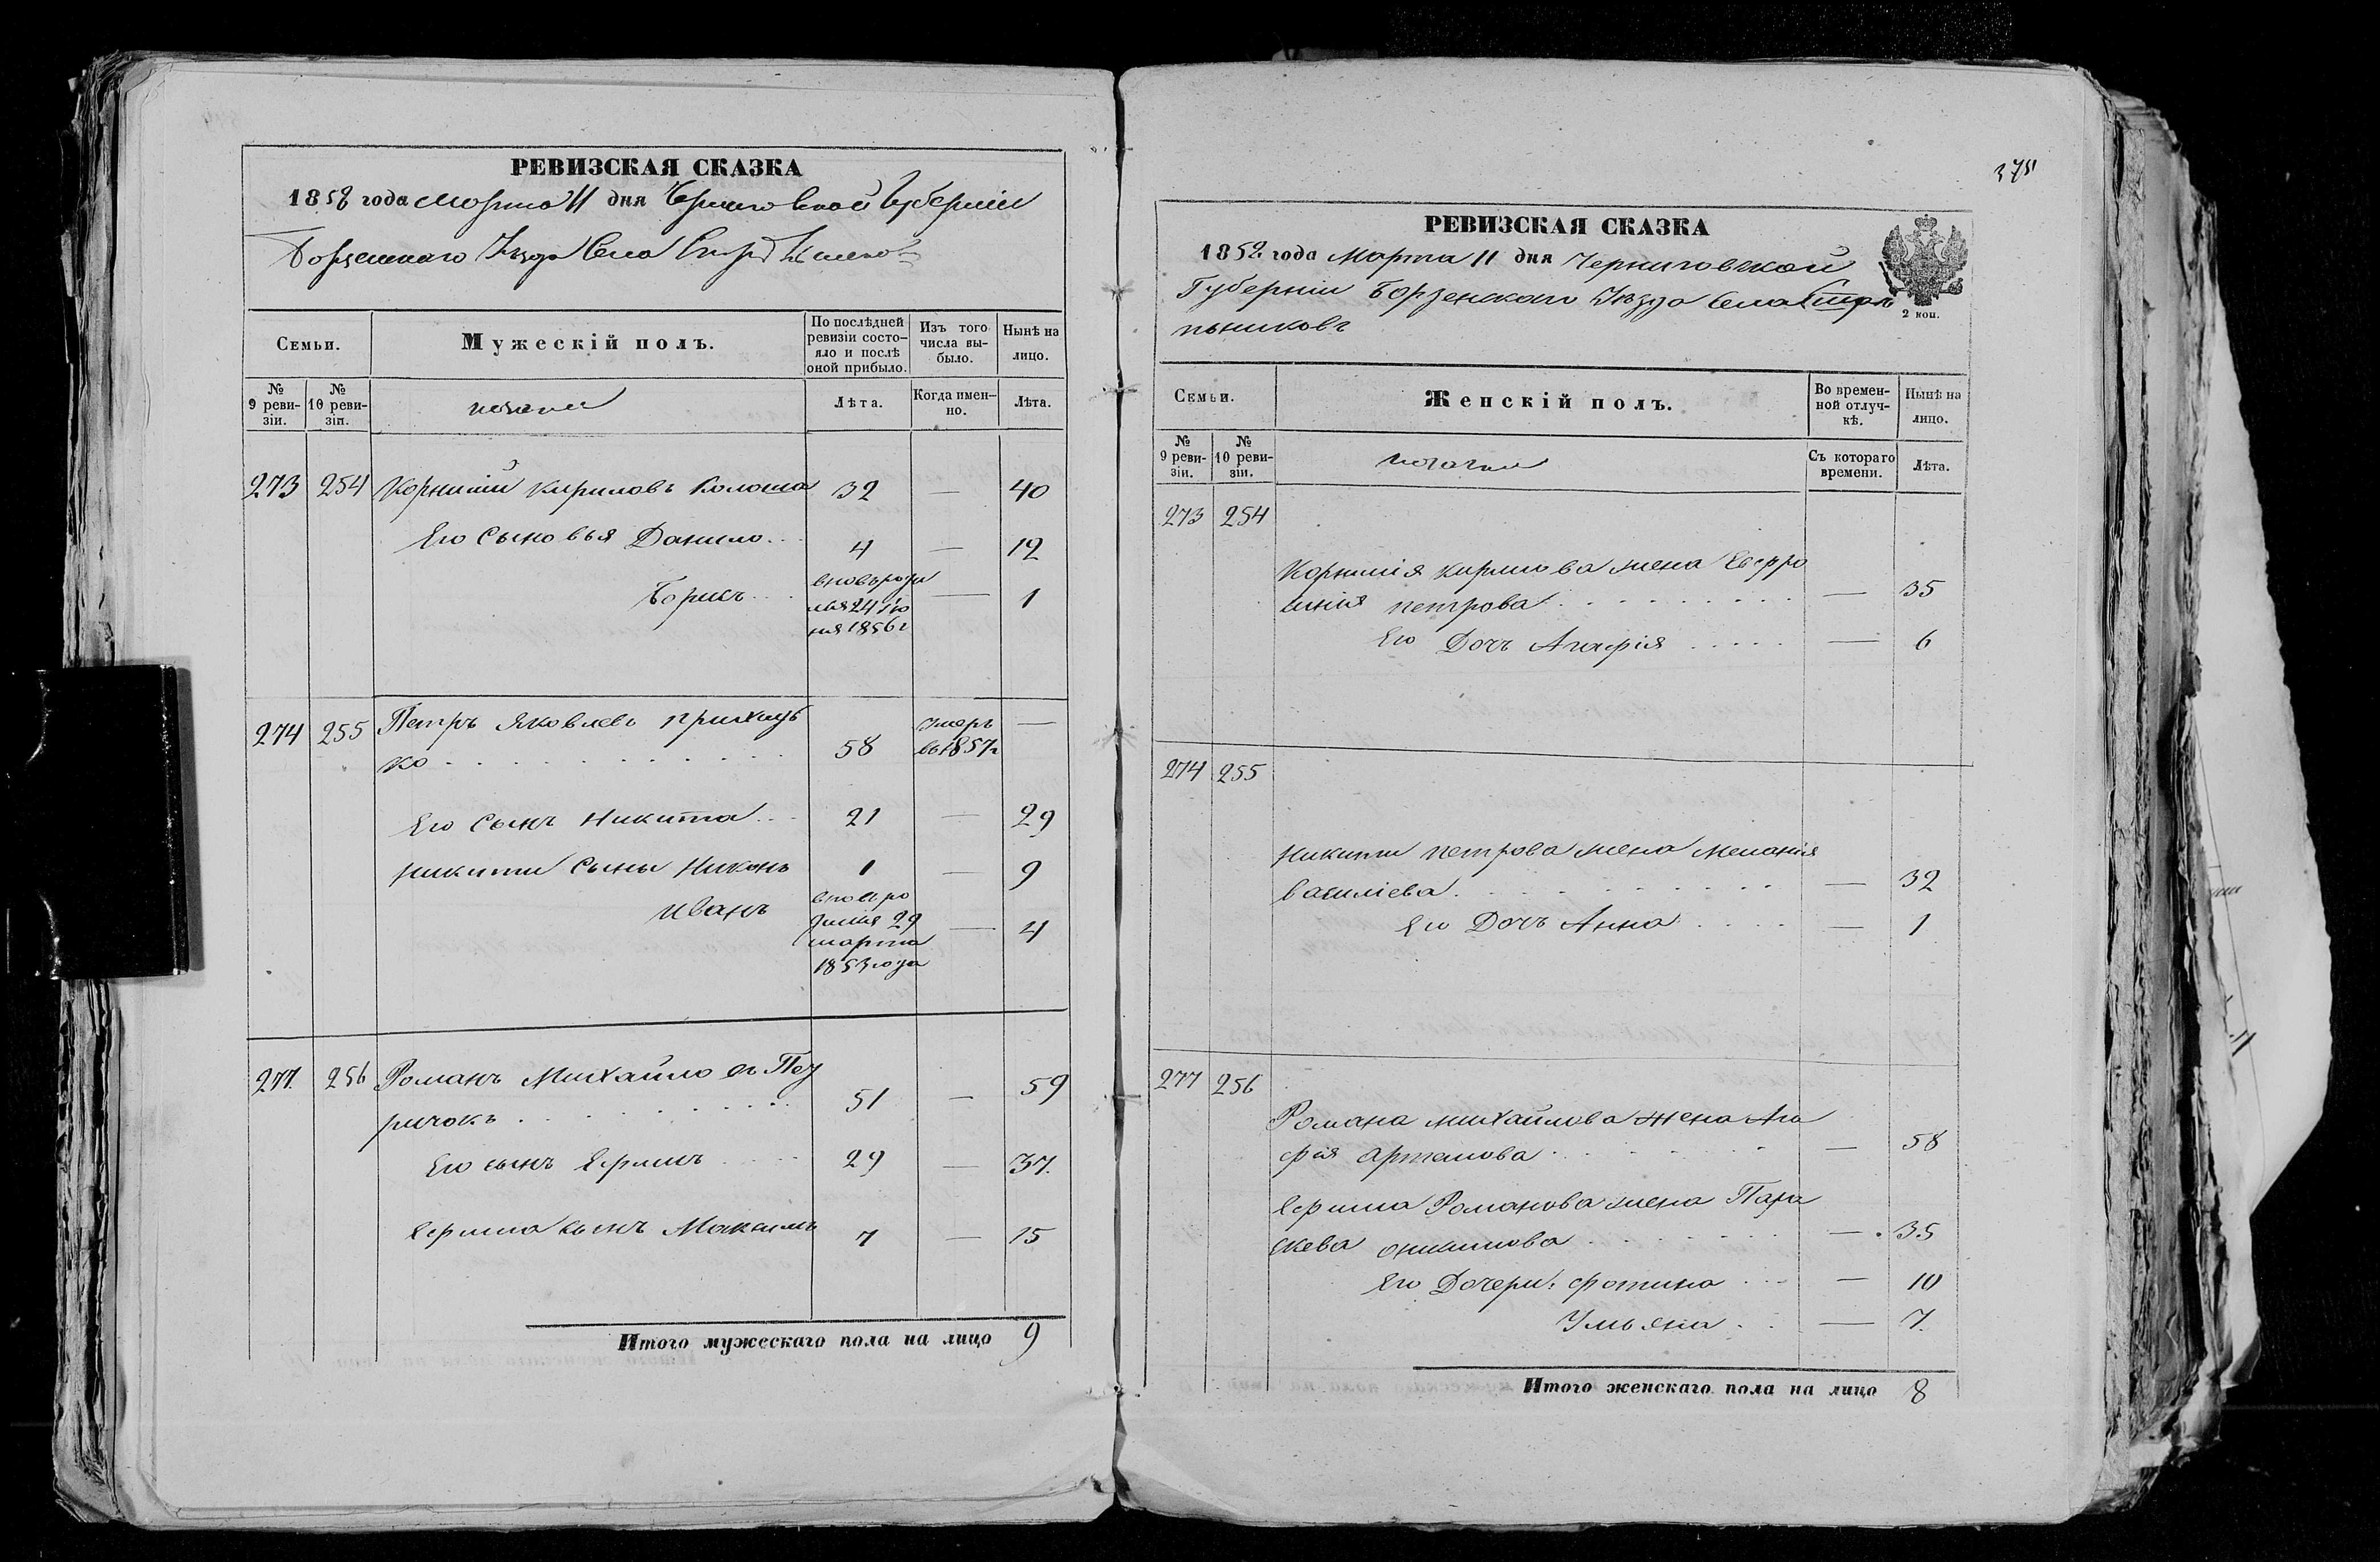 РЕВИЗСКАЯ СКАЗКА
1858 года Марта 11 дня Черниговской Губерніи
Борзенскаго Уѣзда Села
Семьи.
Мужескій полъ.
По послѣдней ревизіи состо-
яло и послѣ
оной прибыло.
Изъ того
числа вы-
было.
Нынѣ на
лицо.
№
9 реви-
зіи.
№
10 реви-
зіи.
козаки
Лѣта.
Когда имен-
но.
Лѣта.
273 254 Корнилій Кириловъ Колоша 32 — 40
Его Сыновья Данило 4 — 12
Борисъ — 1
вновь роди
лся 24 Ію
ня 1856 г
274 255 Петръ Яковлевъ Приходь
ко 58 умеръ
въ 1857 г —
Его Сынъ Никита 21 — 29
Никиты Сыны Никонъ 1 — 9
Иванъ — 4
вновь ро
дился 29
марта
1853 года
277 256 Романъ Михайловъ Пед
ричокъ 51 — 59
Его сынъ Ефимъ 29 — 37.
Ефима сынъ Максимъ 7 — 15
Итого мужескаго пола на лицо 9
375
РЕВИЗСКАЯ СКАЗКА
1858 года Марта 11 дня Черниговской
Губерніи Борзенскаго Уѣзда Села
2 коп.
Семьи.
Женскій полъ.
Во времен-
ной отлуч-
кѣ.
Нынѣ на
лицо.
№
9 реви-
зіи.
№
10 реви-
зіи.
козачки
Съ котораго
времени.
Лѣта.
273 254
Корнилія Кирилова жена Евфро
синія Петрова — 35
Его Дочь Агафія — 6
274 255
Никиты Петрова жена Меланія
Василіева — 32
Его Дочь Анна — 1
277 256
Романа Михайлова жена Ага
фія Артемова — 58
Ефима Романова жена Пара
скева — 35
Его Дочери: Фотина — 10
Ульяна — 7.
Итого женскаго пола на лицо 8